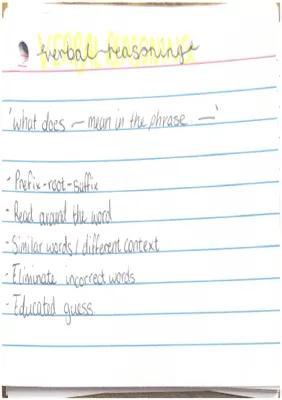 verbal reasoning
'what does — mean in the phrase —'
- Prefix-root-suffix
- Read around the word
- Similar words / different context
- Eliminate incorrect words
- Educated guess